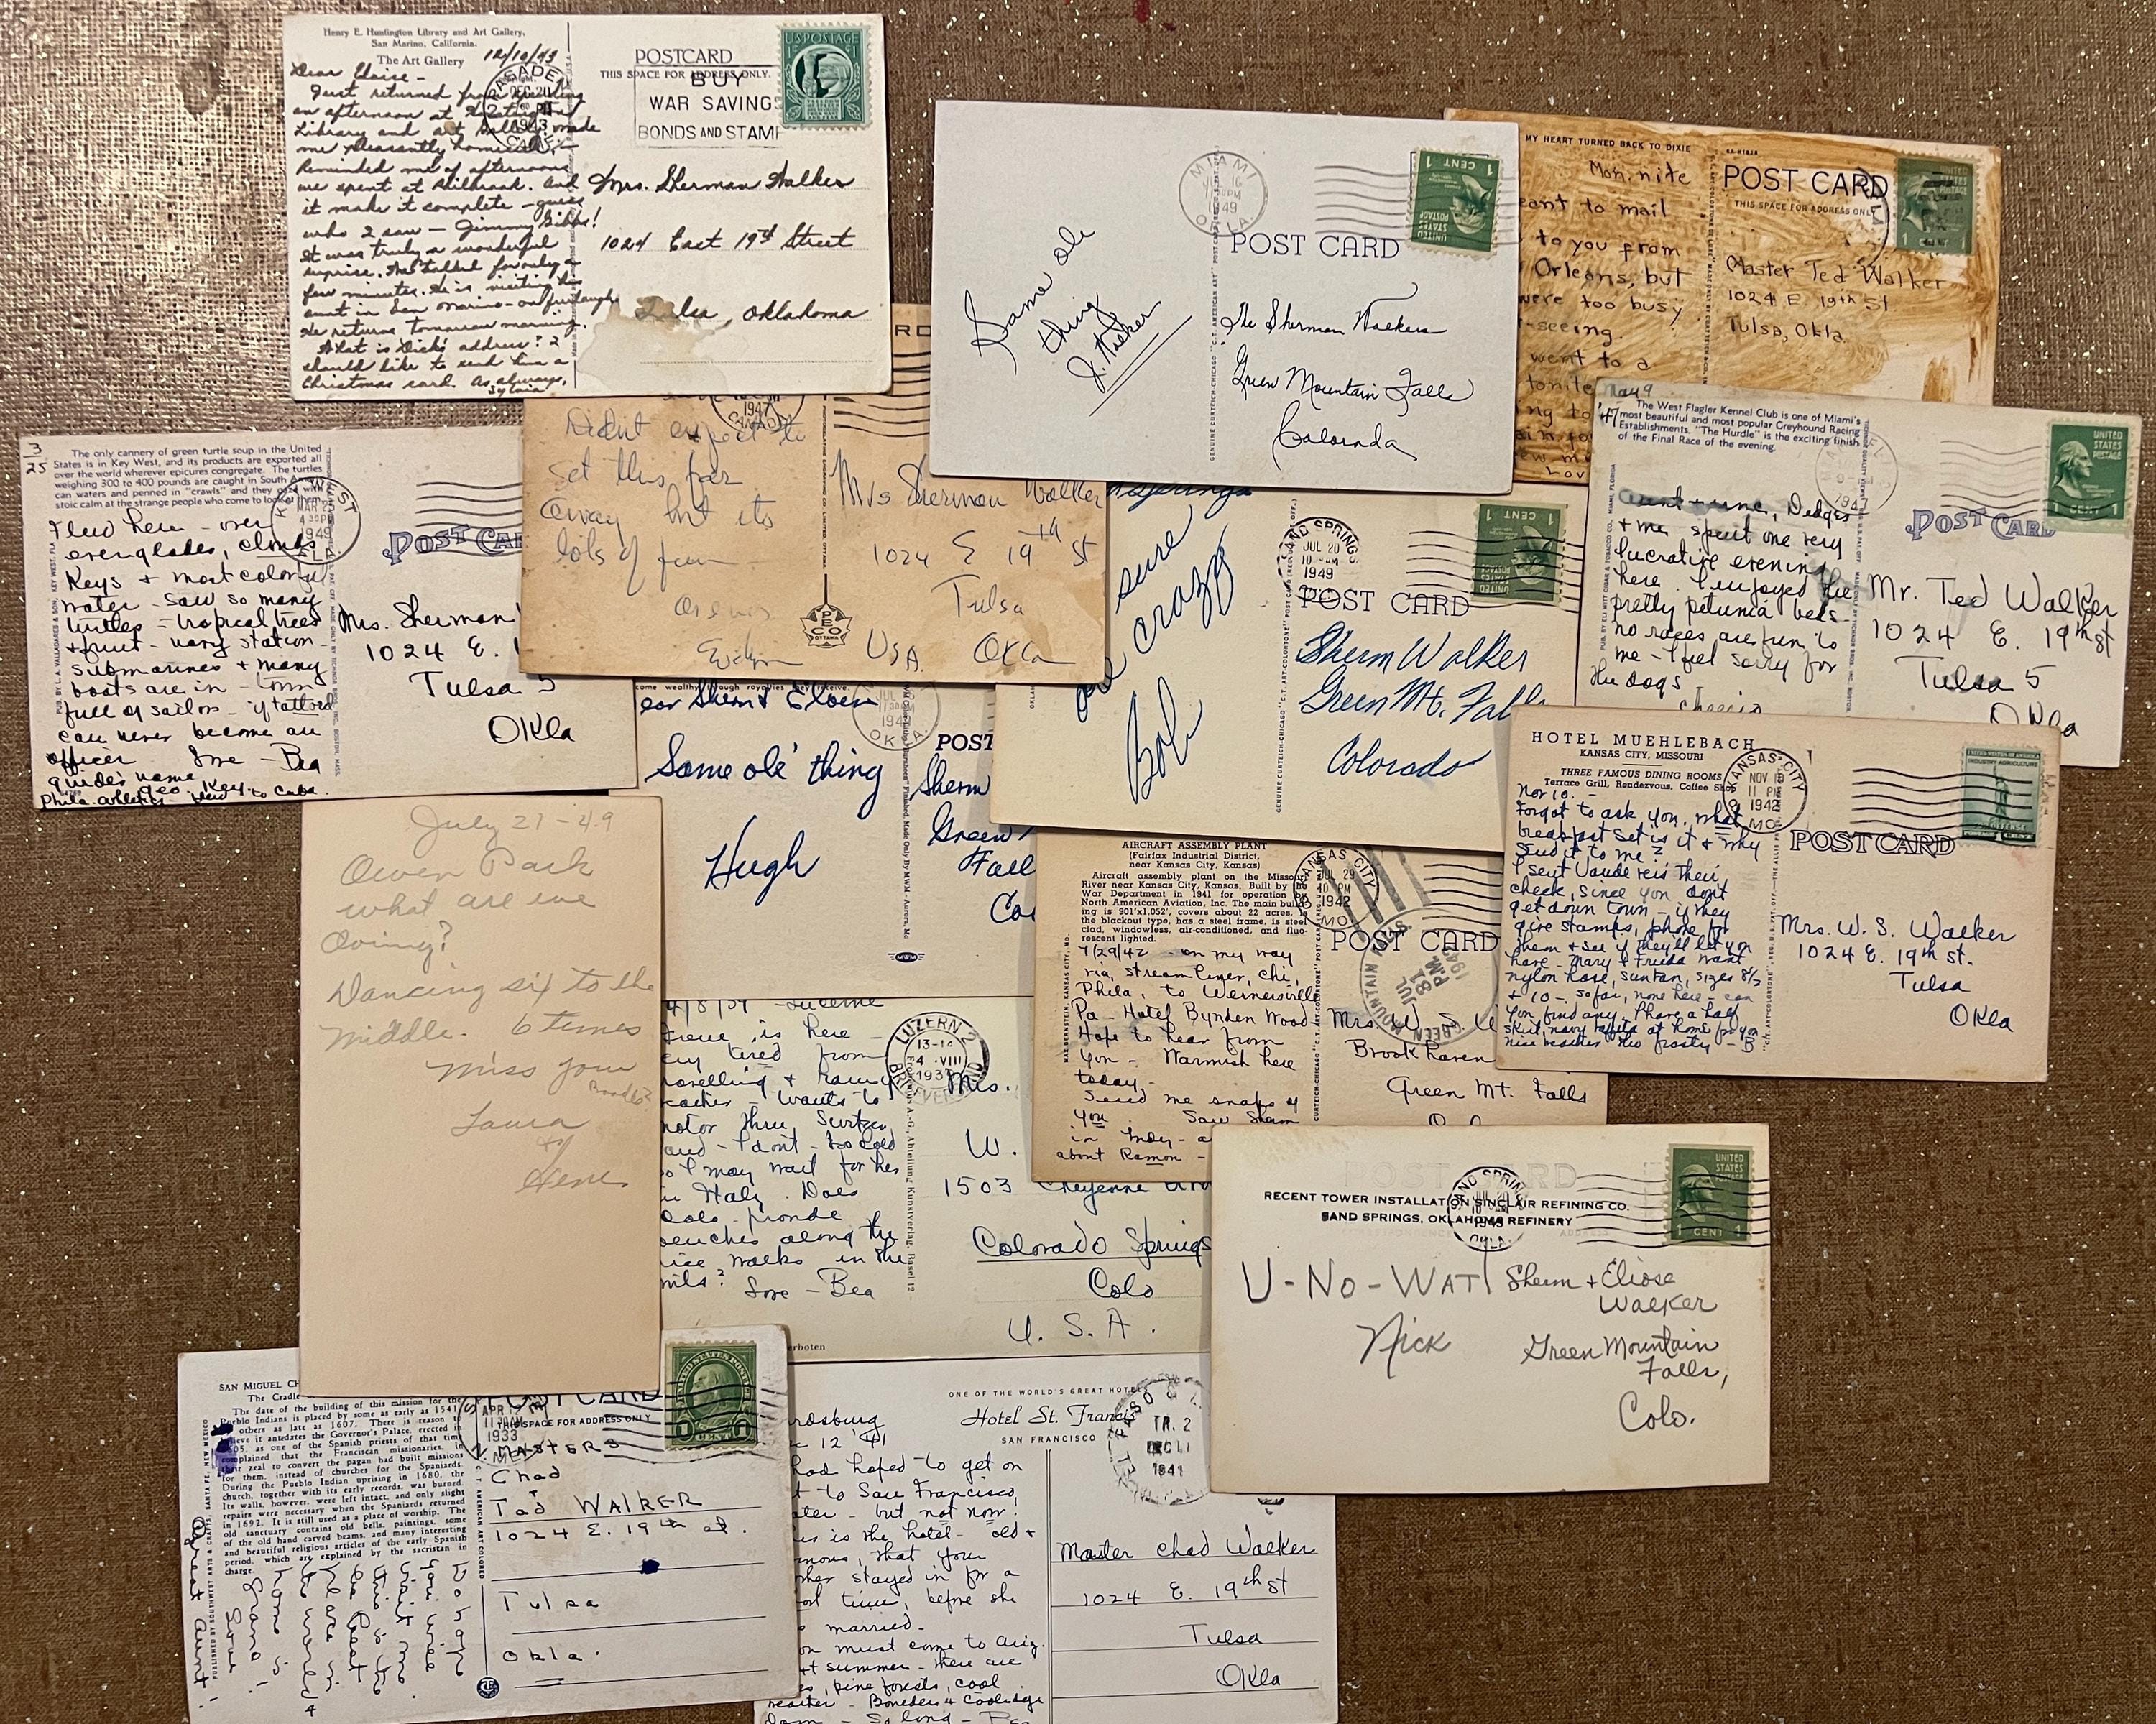 Henry E. Huntington Library and Art Gallery,
San Marino, California.
The Art Gallery
12/10/43
Dear Eloise -
Just returned from spending
an afternoon at Huntington
Library and art Gallery, made
me pleasantly homesick -
Reminded me of afternoons
we spent at Philbrook. And
it make it complete - guess
who I saw - Jimmy Gibbs!
It was truly a wonderful
surprise. We talked for only a
few minutes. He is visiting his
aunt in San Marino - on furlough
He returns tomorrow morning.
What is Dick's address? I
should like to send him a
Christmas card. As always,
Sylvia
PASADENA
DEC 20
1943
CALIF
POSTCARD
THIS SPACE FOR ADDRESS ONLY.
BUY
WAR SAVINGS
BONDS AND STAM
U.S. POSTAGE
Mrs. Sherman Walker
1024 East 19th Street
Tulsa, Oklahoma
MIAMI
16
1949
OKLA.
1 CENT
UNITED STATES POSTAGE
POST CARD
GENUINE CURTEICH-CHICAGO "C.T. AMERICAN ART" POST CARD
Same ole
thing
J. Walker
The Sherman Walkers
Green Mountain Falls
Colorado
MY HEART TURNED BACK TO DIXIE
POST CARD
THIS SPACE FOR ADDRESS ONLY
Mon. nite
eant to mail
to you from
Orleans, but
were too busy
-seeing.
went to a
tonite
ng to
Lov
Master Ted Walker
1024 E. 19th St.
Tulsa, Okla.
3/25
The only cannery of green turtle soup in the United
States is in Key West, and its products are exported all
over the world wherever epicures congregate. The turtles
weighing 300 to 400 pounds are caught in South Am
can waters and penned in "crawls" and they gaze with
stoic calm at the strange people who come to look at them.
KEY WEST
MAR 25
4 30 PM
1949
POST CA
Flew here - over
everglades, clouds
Keys & most colorful
water - saw so many
turtles - tropical trees
& fruit - navy station -
submarines & many
boats are in - town
full of sailors - if tattooed
can never become an
officer Love - Bea
guide's name
Geo. Key
Phila. athletics - flew to Cuba.
Mrs. Sherman
1024 E. 1
Tulsa 5
Okla
1947
CANADA
Didnt expect to
get this far
away but its
lots of fun -
Evelyn
PECO
OTTAWA
Mrs Sherman Walker
1024 E 19th St
Tulsa
USA. Okla
SAND SPRINGS
JUL 20
10 AM
1949
OKLA.
POST CARD
sure
are crazy
Bob
Sherm Walker
Green Mt. Falls
Colorado
May 9
'47
The West Flagler Kennel Club is one of Miami's
most beautiful and most popular Greyhound Racing
Establishments. "The Hurdle" is the exciting finish
of the Final Race of the evening.
1947
POST CARD
UNITED
STATES
POSTAGE
1 CENT
& me spent one very
lucrative evening
here. I enjoyed the
pretty petunia beds -
no races are fun to
me - I feel sorry for
the dogs
cheerio
Mr. Ted Walker
1024 E. 19th St
Tulsa 5
Okla
come wealthy through royalties they receive.
ear Sherm & Eloise
Same ole' thing
Hugh
JUL
1949
OKLA.
POST
Sherm
Green
Fall
Co
HOTEL MUEHLEBACH
KANSAS CITY, MISSOURI
THREE FAMOUS DINING ROOMS
Terrace Grill, Rendezvous, Coffee Shop
KANSAS CITY
NOV 10
11 PM
1942
MO.
POST CARD
Nov 10. -
Forgot to ask you, what
breakfast set is it & why
send it to me?
I sent Vandevers their
check, since you don't
get down town - if they
give stamps, phone for
them & see if they'll let you
have - Mary & Frieda want
nylon hose, suntan, sizes 8½
& 10 - so far, none here - can
you find any. I have a half
skirt, navy taffeta at home for you
nice weather this frosty - B
Mrs. W. S. Walker
1024 E. 19th St.
Tulsa
Okla
July 21 - 49
Owen Park
what are we
Owing?
Dancing six to the
middle. 6 times
Miss you
Laura
&
Gene
AIRCRAFT ASSEMBLY PLANT
(Fairfax Industrial District,
near Kansas City, Kansas)
Aircraft assembly plant on the Missouri
River near Kansas City, Kansas. Built by the
War Department in 1941 for operation by
North American Aviation, Inc. The main build-
ing is 901'x1,052', covers about 22 acres, is
the blackout type, has a steel frame, is steel
clad, windowless, air-conditioned, and fluo-
rescent lighted.
KANSAS CITY
JUL 29
10 PM
1942
MO.
POST CARD
GREEN MOUNTAIN FALLS
JUL
31
P.M.
1942
7/29/42 - on my way
via, streamliner, Chi,
Phila, to Wernersville
Pa - Hotel Bynden Wood -
Hope to hear from
you - Warmish here
today -
Send me snaps of
you. Saw Sham
in Indy - a
about Ramon -
Mrs. W. S. W
Brookhaven
Green Mt. Falls
4/8/37 - Lucerne
rene is here -
ery tired from
ravelling & rainy
eather - wants to
motor thru Switzer
and - I don't - so cold
so I may wait for her
in Italy. Does
Colo. provide
benches along the
nice walks in the
Love - Bea
LUZERN 2
13-14
4.VIII
193
BRIEFVERSAND
erboten
Mrs.
W.
1503 Cheyenne
Colorado Springs
Colo
U. S. A.
POST CARD
RECENT TOWER INSTALLATION SINCLAIR REFINING CO.
SAND SPRINGS, OKLAHOMA REFINERY
SAND SPRIN
OKLA.
UNITED
STATES
POSTAGE
1 CENT
U-NO-WAT
Nick
Sherm + Eliose
Walker
Green Mountain
Falls,
Colo.
SAN MIGUEL CH
The Cradle
The date of the building of this mission for the
Pueblo Indians is placed by some as early as 1541,
others as late as 1607. There is reason to
believe it antedates the Governor's Palace, erected in
1605, as one of the Spanish priests of that time
complained that the Franciscan missionaries, in
their zeal to convert the pagan had built missions
for them, instead of churches for the Spaniards.
During the Pueblo Indian uprising in 1680, the
church, together with its early records, was burned.
Its walls, however, were left intact, and only slight
repairs were necessary when the Spaniards returned
in 1692. It is still used as a place of worship. The
old sanctuary contains old bells, paintings, some
of the old hand carved beams, and many interesting
and beautiful religious articles of the early Spanish
period, which are explained by the sacristan in
charge.
PUBLISHED BY SOUTHWEST ARTS & CRAFTS, SANTA FE, NEW MEXICO
Great Aunt!
POST CARD
THIS SPACE FOR ADDRESS ONLY
APR
11 30 AM
1933
N. MEX.
UNITED STATES POSTAGE
MASTERS
Chad
+
Tad WALKER
1024 E. 19th st.
Tulsa
Okla.
ONE OF THE WORLD'S GREAT HOTELS
Hotel St. Francis
SAN FRANCISCO
TR. 2
DEC 11
1941
rdsburg
c 12 '41
had hoped to get on
t to San Francisco,
ater - but not now!
his is the hotel - old &
mous, that your
ther stayed in for a
ort time, before she
s married -
ou must come to Ariz.
xt summer - there are
s, pine forests, cool
weather - Boulder & Coolidge
dam - So long - Bea
Master Chad Walker
1024 E. 19th St
Tulsa
Okla